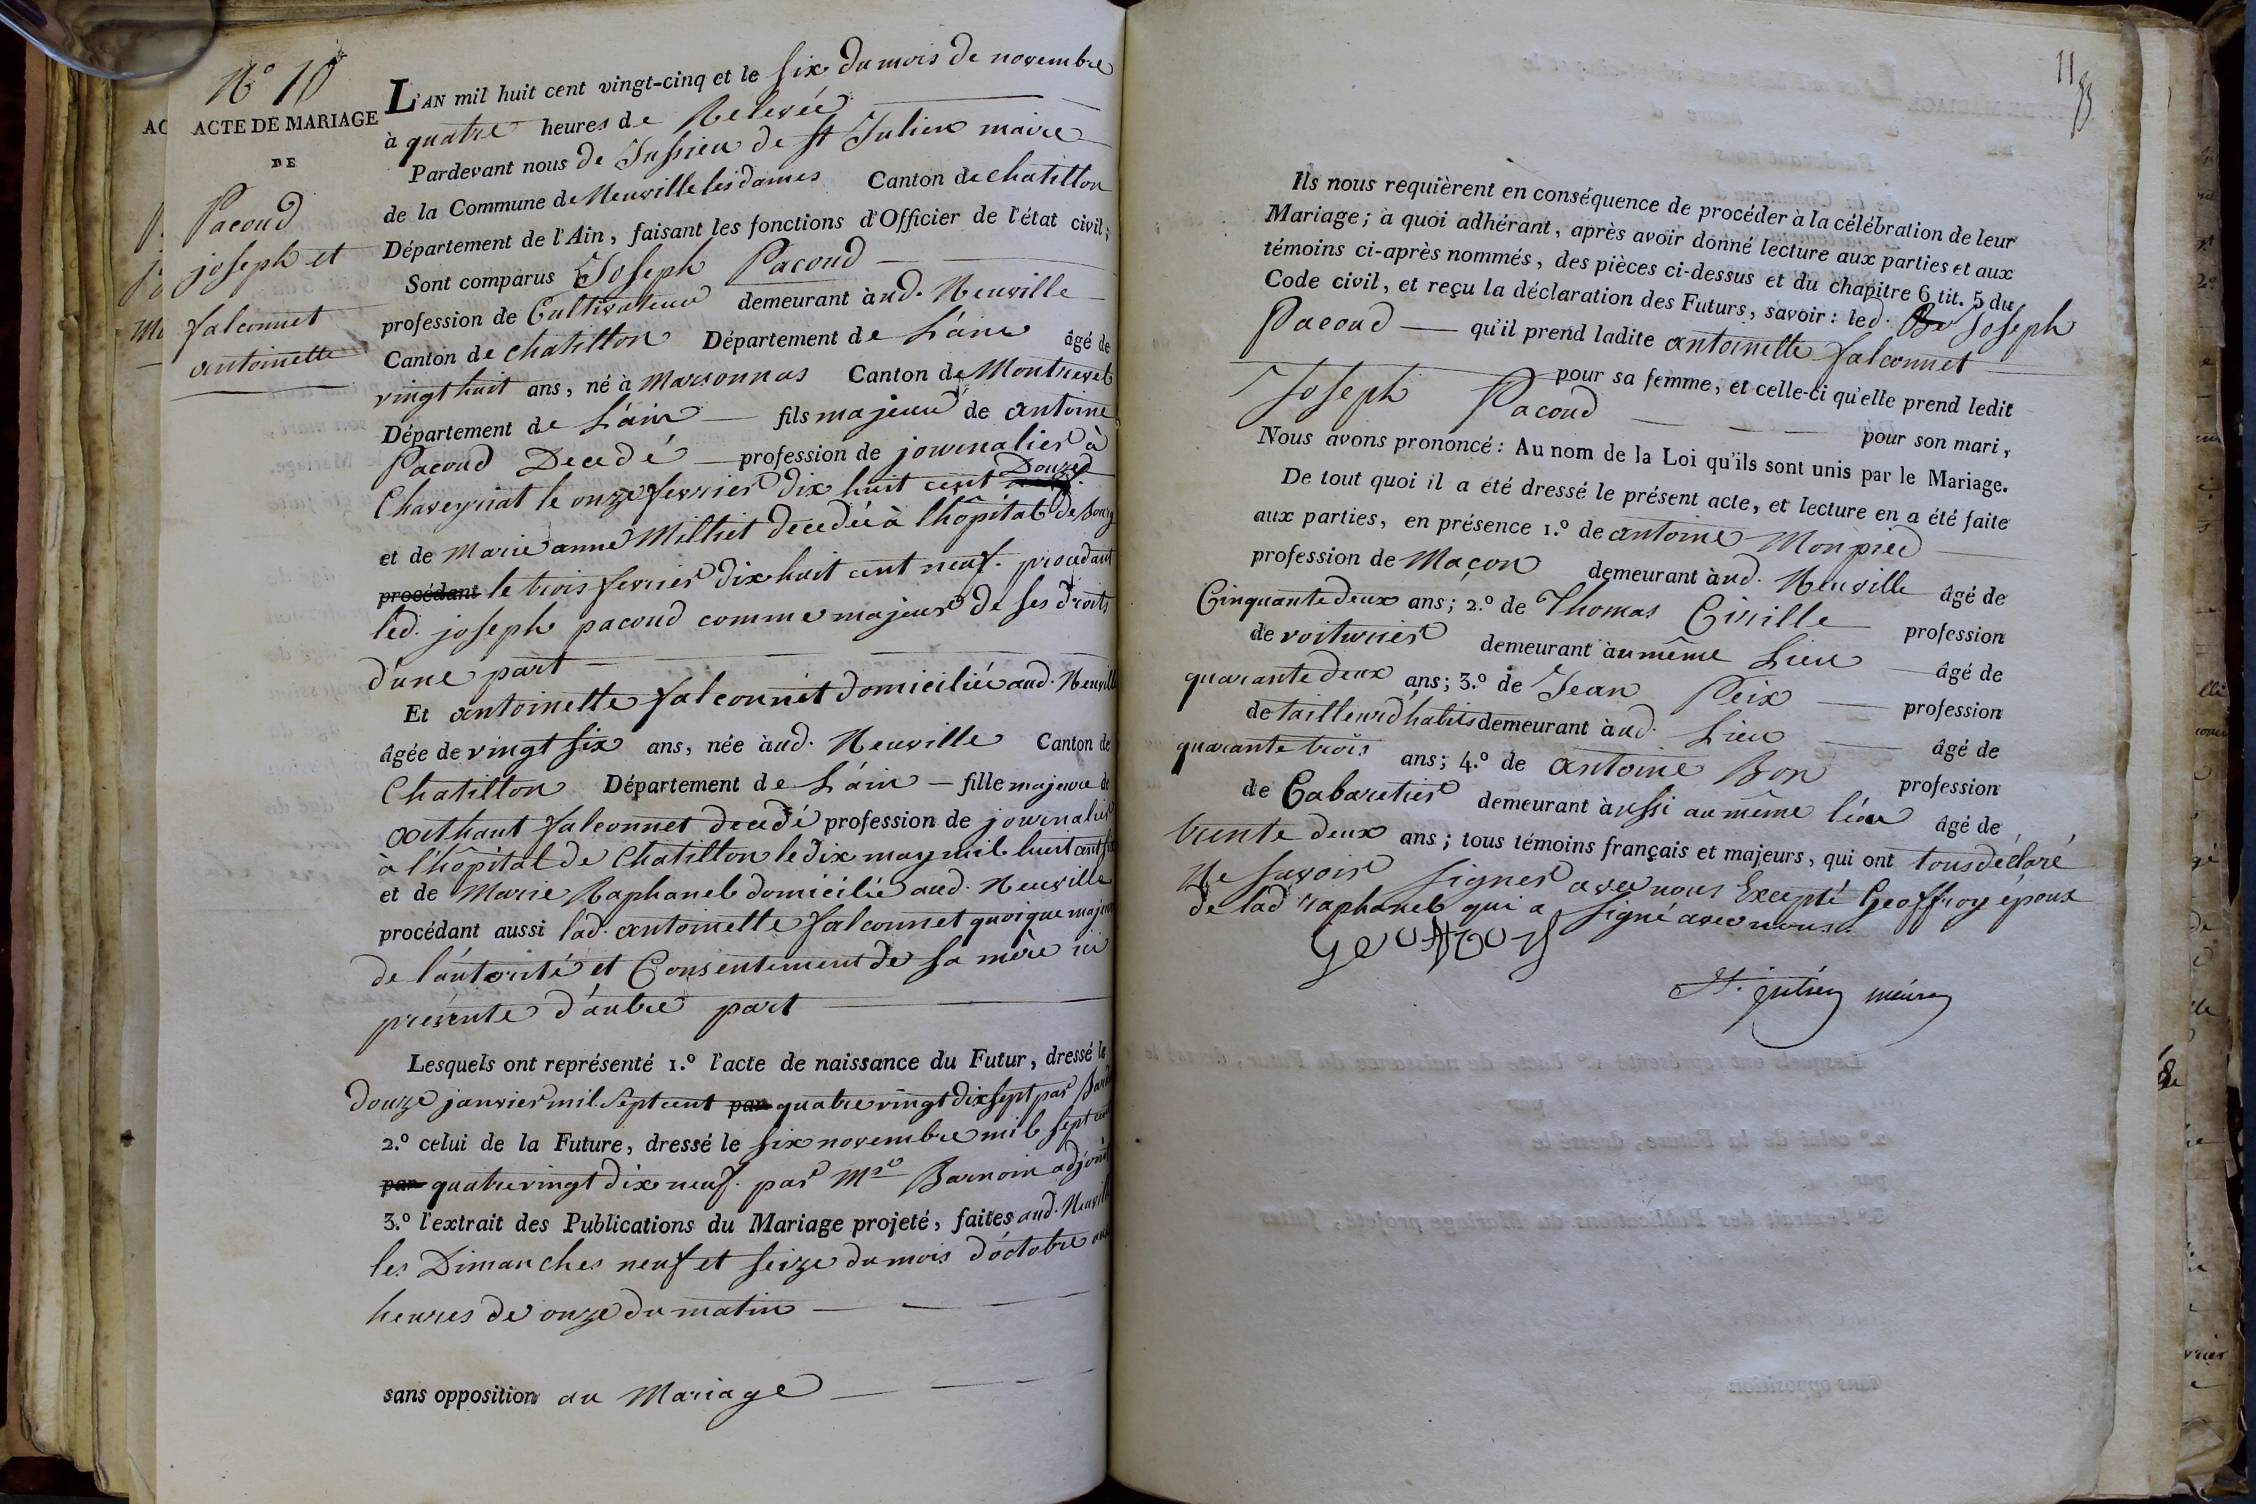 N.° 10
ACTE DE MARIAGE
DE
Pacoud
joseph et
falconnet
antoinette
L'AN mil huit cent vingt-cinq et le six du mois de novembre
à quatre heures de Relevée
Pardevant nous de Jussieu de St Julien maire
de la Commune de Neuville les dames Canton de chatillon
Département de l'Ain, faisant les fonctions d'Officier de l'état civil;
Sont comparus Joseph Pacoud
profession de Cultivateur demeurant aud. Neuville
Canton de chatillon Département de L'ain âgé de
vingt huit ans, né à Marsonnas Canton de Montrevel
Département de L'ain fils majeur de antoine
Pacoud Decedé profession de journalier à
Chaveyriat le onze fevrier dix huit cent Douze
et de Marie anne Milliet decedée à l'hôpital de bourg
procédant le trois fevrier dix huit cent neuf. procedant
led. joseph pacoud comme majeur de ses droits
d'une part
Et antoinette falconnet domiciliée aud. Neuville
âgée de vingt six ans, née aud. Neuville Canton de
Chatillon Département de L'ain fille majeure de
falconnet decedé profession de journalier
à l'hôpital de Chatillon le dix may mil huit cent six
et de Marie Raphanel domiciliée aud. Neuville
procédant aussi lad. antoinette falconnet quoique majeure
de l'autorité et Consentement de sa mère ici
présente d'autre part
Lesquels ont représenté 1.° l'acte de naissance du Futur, dressé le
Douze janvier mil sept cent par quatre vingt dix sept par
2.° celui de la Future, dressé le six novembre mil sept cent
par quatre vingt dix neuf. par Mr Barnoin adjoint
3.° l'extrait des Publications du Mariage projeté, faites aud. Neuville
les Dimanches neuf et seize du mois d'octobre aux
heures de onze du matin
sans opposition au Mariage
11
Ils nous requièrent en conséquence de procéder à la célébration de leur
Mariage; à quoi adhérant, après avoir donné lecture aux parties et aux
témoins ci-après nommés, des pièces ci-dessus et du chapitre 6 tit. 5 du
Code civil, et reçu la déclaration des Futurs, savoir: led. Joseph
Pacoud qu'il prend ladite antoinette falconnet
pour sa femme, et celle-ci qu'elle prend ledit
Joseph Pacoud pour son mari,
Nous avons prononcé: Au nom de la Loi qu'ils sont unis par le Mariage.
De tout quoi il a été dressé le présent acte, et lecture en a été faite
aux parties, en présence 1.° de antoine Monpied
profession de Maçon demeurant aud. Neuville âgé de
Cinquante deux ans; 2.° de Thomas Cirille profession
de voiturier demeurant au même Lieu âgé de
quarante deux ans; 3.° de Jean Peix profession
de tailleur d'habits demeurant aud. Lieu âgé de
quarante trois ans; 4.° de antoine Bon profession
de Cabaretier demeurant aussi au même lieu âgé de
trente deux ans; tous témoins français et majeurs, qui ont tous déclaré
Ne savoir signer avec nous Excepté Geoffroy époux
de lad raphanel qui a signé avec nous.
St. julien maire